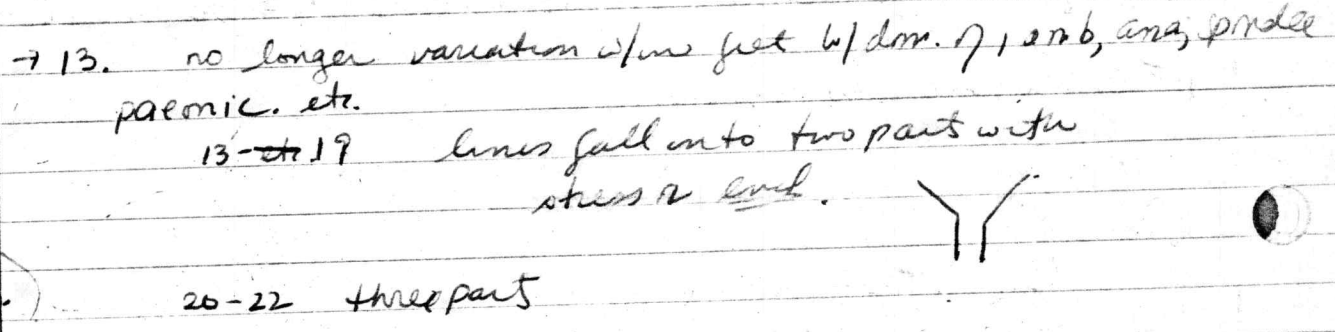 → 13. no longer variation w/in feet w/ dom. of iamb, ana, spondee
paeonic. etc.
13-19 lines fall into two part with
stress 2 each.
20-22 three part